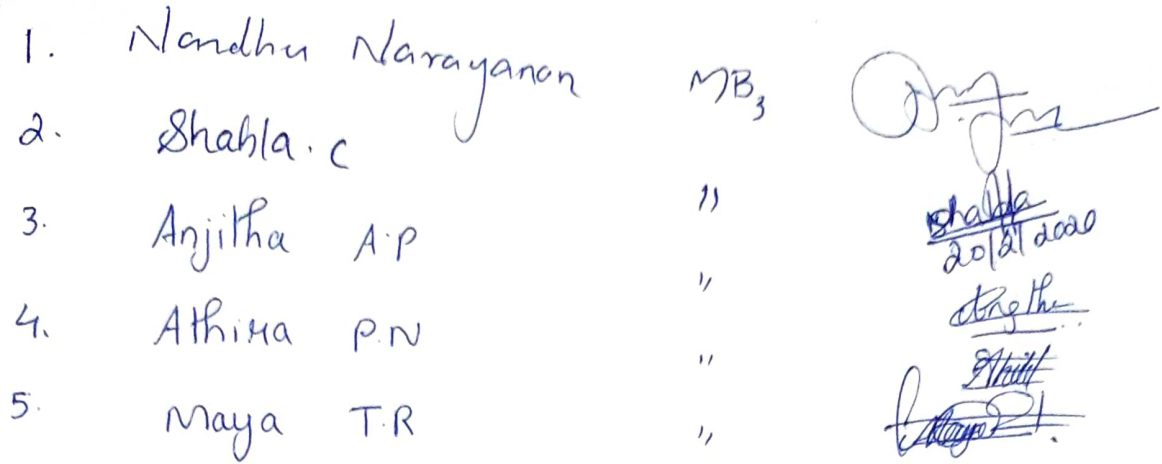 1. Nandhu Narayanan MB3
2. Shahla.C "
Shahla
20/2/2020
3. Anjitha A.P "
4. Athira P.N "
5. Maya T.R "